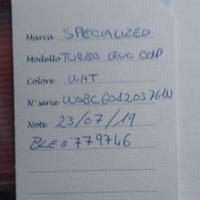 Marca SPECIALIZED
Modello TURBO LEVO COMP
Colore WHT
N° serie WSBC601203761N
Note 23/07/19
BLE8779746